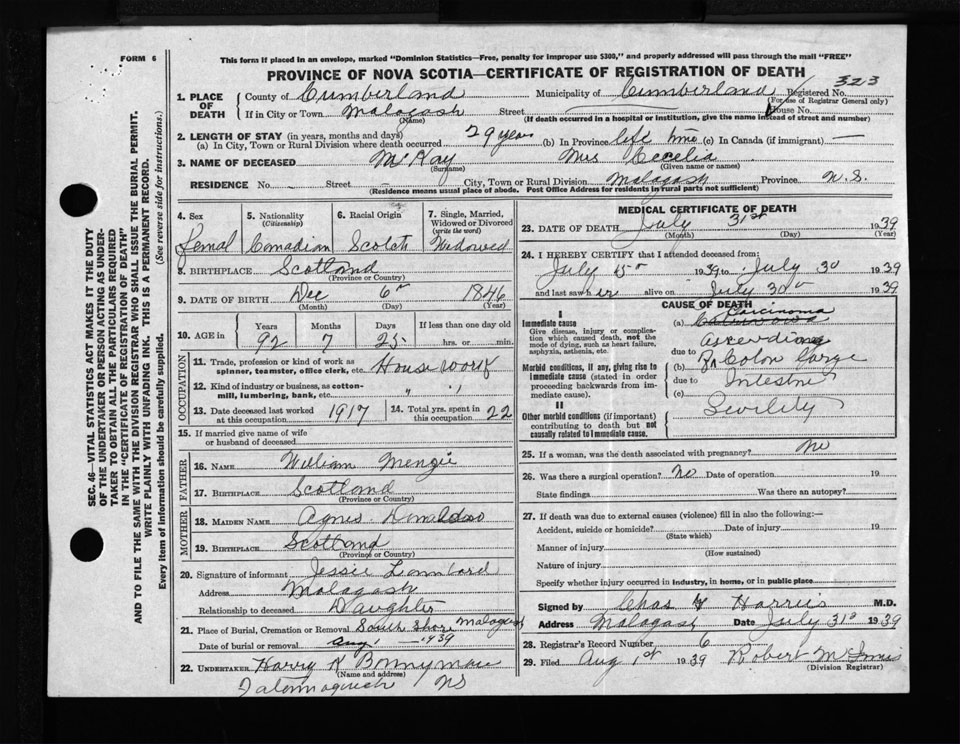 FORM 6
This form if placed in an envelope, marked "Dominion Statistics—Free, penalty for improper use $300," and properly addressed will pass through the mail "FREE"
PROVINCE OF NOVA SCOTIA—CERTIFICATE OF REGISTRATION OF DEATH
323
1. PLACE OF DEATH
County of Cumberland Municipality of Cumberland Registered No.
(For use of Registrar General only)
If in City or Town Malagash Street House No.
(Name) (If death occurred in a hospital or institution, give the name instead of street and number)
2. LENGTH OF STAY (in years, months and days)
(a) In City, Town or Rural Division where death occurred 29 years (b) In Province life time (c) In Canada (if immigrant) —
3. NAME OF DECEASED McKay Mrs Cecelia
(Surname) (Given name or names)
RESIDENCE No. - Street - City, Town or Rural Division Malagash Province N.S.
(Residence means usual place of abode. Post Office Address for residents in rural parts not sufficient)
SEC. 46—VITAL STATISTICS ACT MAKES IT THE DUTY
OF THE UNDERTAKER OR PERSON ACTING AS UNDER-
TAKER TO OBTAIN ALL THE PARTICULARS REQUIRED
IN THE "CERTIFICATE OF REGISTRATION OF DEATH"
AND TO FILE THE SAME WITH THE DIVISION REGISTRAR WHO SHALL ISSUE THE BURIAL PERMIT.
WRITE PLAINLY WITH UNFADING INK. THIS IS A PERMANENT RECORD.
Every item of information should be carefully supplied. (See reverse side for instructions.)
4. Sex 5. Nationality (Citizenship) 6. Racial Origin 7. Single, Married, Widowed or Divorced (write the word)
Femal Canadian Scotch Widowed
8. BIRTHPLACE Scotland
(Province or Country)
9. DATE OF BIRTH Dec 6 1846
(Month) (Day) (Year)
10. AGE in Years Months Days If less than one day old
92 7 25 hrs. or min.
OCCUPATION
11. Trade, profession or kind of work as spinner, teamster, office clerk, etc. House work
12. Kind of industry or business, as cotton-mill, lumbering, bank, etc. " "
13. Date deceased last worked at this occupation 1917 14. Total yrs. spent in this occupation 22
15. If married give name of wife or husband of deceased
FATHER
16. NAME William Menzie
17. BIRTHPLACE Scotland
(Province or Country)
MOTHER
18. MAIDEN NAME Agnes
19. BIRTHPLACE Scotland
(Province or Country)
20. Signature of informant Jessie Lombard
Address Malagash
Relationship to deceased Daughter
21. Place of Burial, Cremation or Removal South Shore Malagash
Date of burial or removal Aug 1 1939
22. UNDERTAKER Harry K Bonnyman
(Name and address)
NS
MEDICAL CERTIFICATE OF DEATH
23. DATE OF DEATH July 31st 1939
(Month) (Day) (Year)
24. I HEREBY CERTIFY that I attended deceased from:
July 15 1939 to July 30 1939
and last saw her alive on July 30 1939
CAUSE OF DEATH
I
Immediate cause
Give disease, injury or complication which caused death, not the mode of dying, such as heart failure, asphyxia, asthenia, etc.
(a) Carcinoma
ascending
Morbid conditions, if any, giving rise to immediate cause (stated in order proceeding backwards from immediate cause).
due to
(b) Colon large
due to Intestine
(c)
II
Other morbid conditions (if important) contributing to death but not causally related to immediate cause.
Senility
25. If a woman, was the death associated with pregnancy? No
26. Was there a surgical operation? no Date of operation 19
State findings Was there an autopsy?
27. If death was due to external causes (violence) fill in also the following:—
Accident, suicide or homicide? Date of injury 19
(State which)
Manner of injury
(How sustained)
Nature of injury
Specify whether injury occurred in industry, in home, or in public place
Signed by Chas Harris M.D.
Address Malagash Date July 31 1939
28. Registrar's Record Number 6
29. Filed Aug 1st 1939 Robert McInnis
(Division Registrar)